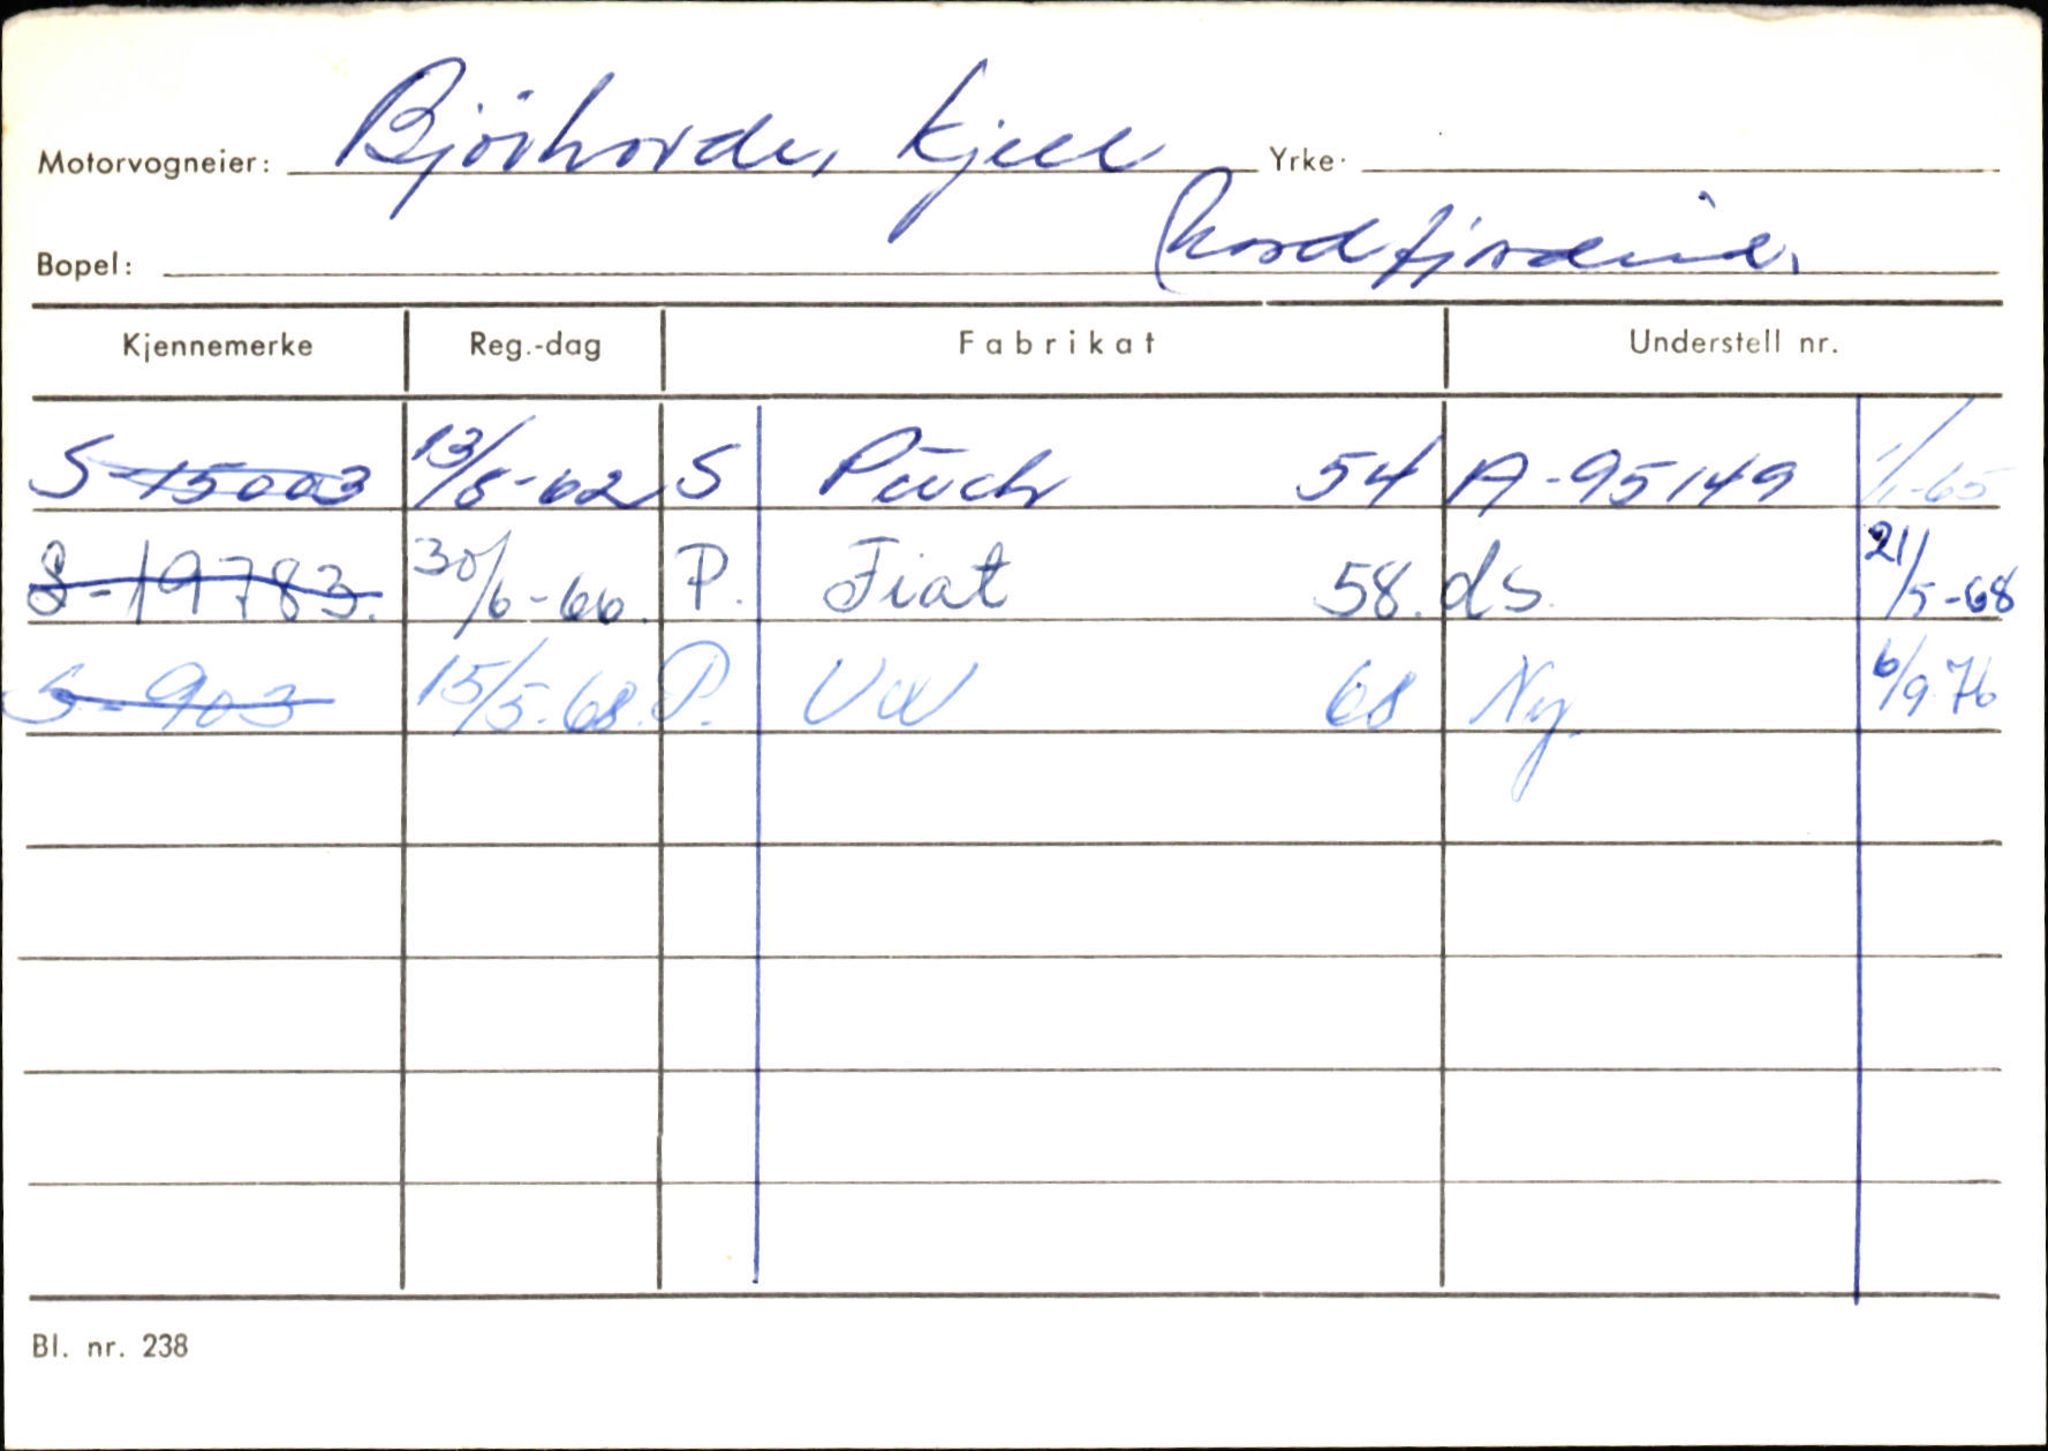 Motorvogneier: Bjórhovde, Kjell Yrke:
Bopel: Nordfjordeid.
Kjennemerke Reg.-dag Fabrikat Understell nr.
S-15003 13/8-62 S Puch 54 A-95149 1/1-65
S-19783. 30/6-66. P. Fiat 58. ds. 21/5-68
S-903 15/5-68. P. VW 68 Ny. 6/9 76
Bl. nr. 238